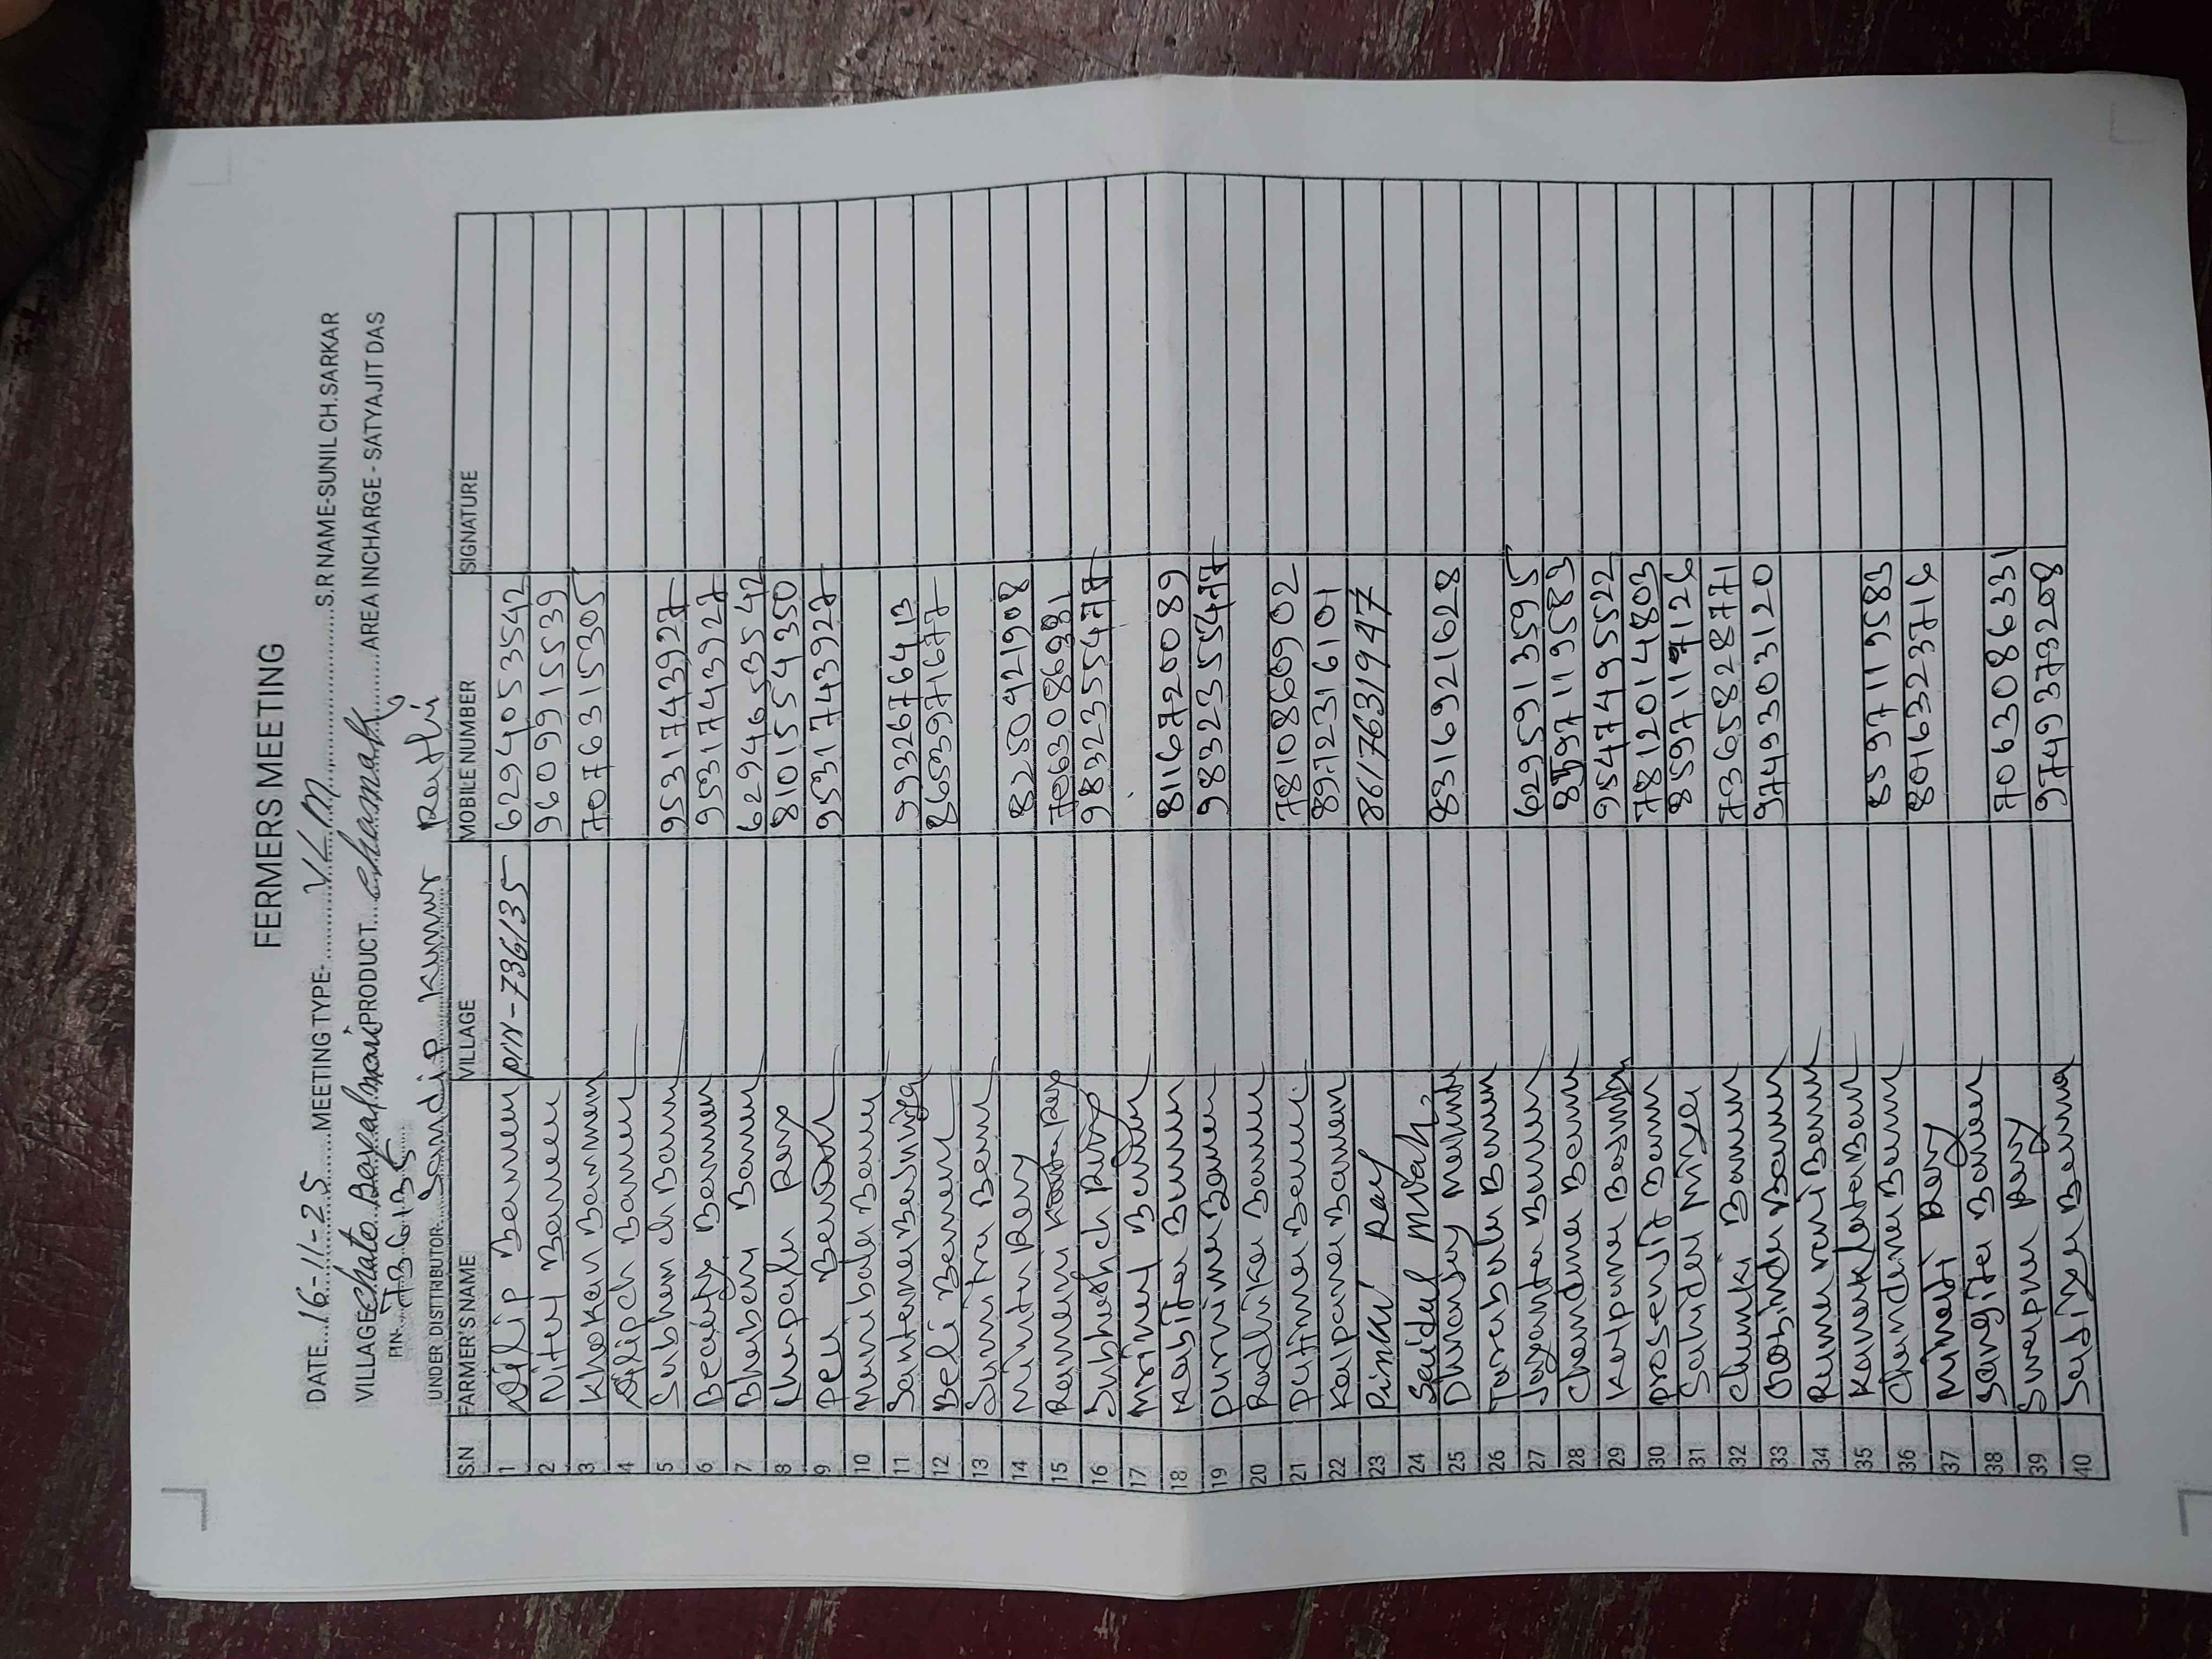 FERMERS MEETING
DATE...16-11-25......MEETING TYPE-.........V.L.M..................S.R NAME-SUNIL CH.SARKAR
VILLAGE PRODUCT....chamak........AREA INCHARGE - SATYAJIT DAS
PIN- 736135
UNDER DISTTRIBUTOR- Sandip Kumar Rathi
S.N FARMER'S NAME VILLAGE MOBILE NUMBER SIGNATURE
1 Dilip Barman PIN-736135 6294053542
2 Nitul Barman 9609915539
3 Khokan Barman 7076315305
4 Dilip ch Barman
5 Subhen ch Barman 9531743927
6 Barman 9531743927
7 Bhaban Barman 6294653542
8 Roy 8101554350
9 Barman 9531743927
10 Barman
11 9932676413
12 Beli Barman 8653971677
13 Sumitra Barman
14 Roy 8250421908
15 Roy
16 Subhash ch Roy 9832355477
17 Mrinal Barman
18 Kabita Barman 8116720089
19 Purnima Barman 9832355477
20 Radhika Barman
21 Barman 7810860902
22 Kalpana Barman 8972316101
23 Pinki Ray 8617631947
24 Saidul Miah.
25 8316921628
26 Barman
27 Jayanta Barman 6295913595
28 Chandana Barman 8597119583
29 Kalpana 9547495522
30 Prosenjit Barman 7812014803
31 Sahidul Miya 8597117126
32 Chumki Barman 7365828771
33 Gobinda Barman 9749303120
34 Barman
35 Kanaklata Barman 8597119583
36 Chandana Barman 8016323716
37 Minati Roy
38 Sangita Barman 7063086331
39 Swapna Roy 9749373208
40 Barman